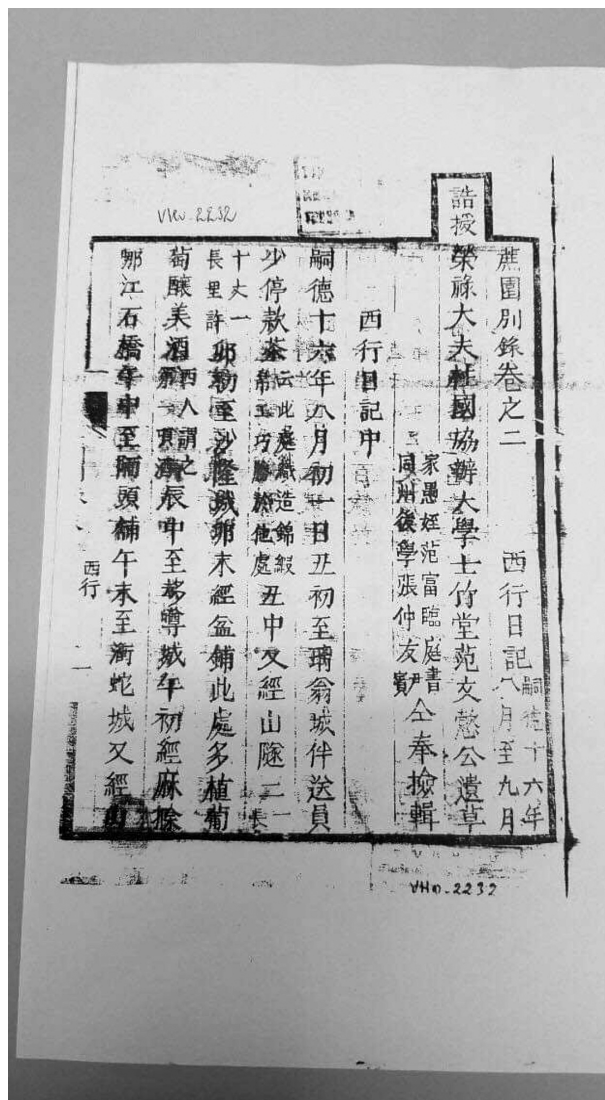 蔗園別錄卷之二 西行日記 嗣德十六年八月至九月
誥授榮祿大夫柱國協辦大學士竹堂范文懿公遺草
家愚姪范富臨庭書
同州後學張仲友尹賓 仝奉撿輯
西行日記中
嗣德十六年八月初一日丑初至瑀翁城伴送員
少停款茶云此庭織造錦緞 巧勝於他處丑中又經山隧二一長
十丈一長里許卯初至沙隆城卯末經盆鋪此處多植葡
萄釀美酒西人謂之 酒辰中至移嶟城午初經麻滁
鄉江石橋午中至 頭鋪午末至 蛇城又經
西行
VHv-2232
VHv-2232